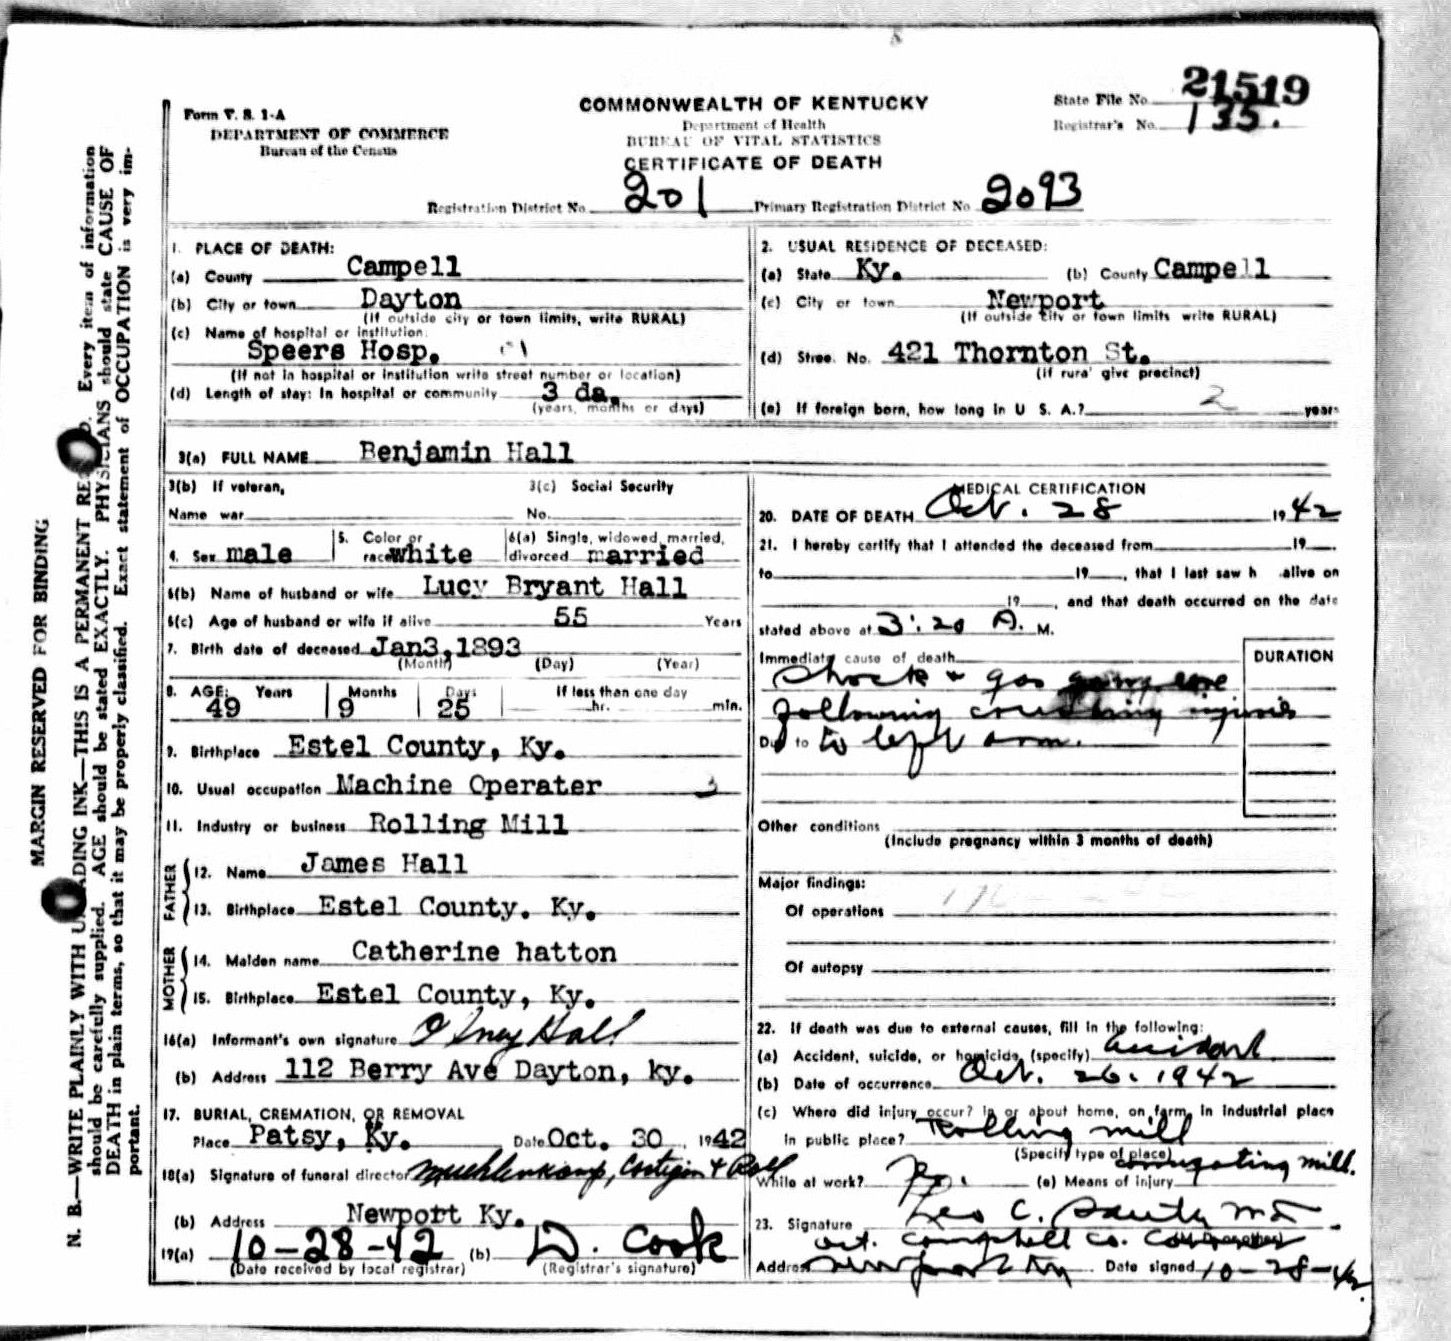 21519
State File No.
Registrar's No. 135.
Form V. S. 1-A
DEPARTMENT OF COMMERCE
Bureau of the Census
COMMONWEALTH OF KENTUCKY
Department of Health
BUREAU OF VITAL STATISTICS
CERTIFICATE OF DEATH
Registration District No. 201 Primary Registration District No. 2093
MARGIN RESERVED FOR BINDING
N. B.—WRITE PLAINLY WITH UNFADING INK—THIS IS A PERMANENT RECORD. Every item of information
should be carefully supplied. AGE should be stated EXACTLY. PHYSICIANS should state CAUSE OF
DEATH in plain terms, so that it may be properly classified. Exact statement of OCCUPATION is very im-
portant.
1. PLACE OF DEATH:
(a) County Campell
(b) City or town Dayton
(If outside city or town limits, write RURAL)
(c) Name of hospital or institution:
Speers Hosp.
(If not in hospital or institution write street number or location)
(d) Length of stay: In hospital or community 3 da.
(years, months or days)
2. USUAL RESIDENCE OF DECEASED:
(a) State Ky. (b) County Campell
(c) City or town Newport
(If outside city or town limits write RURAL)
(d) Stree. No. 421 Thornton St.
(If rural give precinct)
(e) If foreign born, how long in U S. A.? 2 years
3(a) FULL NAME Benjamin Hall
3(b) If veteran, 3(c) Social Security
Name war No.
4. Sex male 5. Color or race white 6(a) Single, widowed, married, divorced married
6(b) Name of husband or wife Lucy Bryant Hall
6(c) Age of husband or wife if alive 55 Years
7. Birth date of deceased Jan3,1893
(Month) (Day) (Year)
8. AGE: Years Months Days If less than one day
49 9 25 hr. min.
9. Birthplace Estel County, Ky.
10. Usual occupation Machine Operater 3
11. Industry or business Rolling Mill
FATHER
12. Name James Hall
13. Birthplace Estel County. Ky.
MOTHER
14. Maiden name Catherine hatton
15. Birthplace Estel County, Ky.
16(a) Informant's own signature Olney Hall
(b) Address 112 Berry Ave Dayton, ky.
17. BURIAL, CREMATION, OR REMOVAL
Place Patsy, Ky. Date Oct. 30 1942
18(a) Signature of funeral director Muehlenkamp, Costigan & Roll
(b) Address Newport Ky.
19(a) 10-28-42 (b) D. Cook
(Date received by local registrar) (Registrar's signature)
MEDICAL CERTIFICATION
20. DATE OF DEATH Oct. 28 1942
21. I hereby certify that I attended the deceased from 19
to 19 , that I last saw h alive on
19 , and that death occurred on the date
stated above at 3:20 A. M.
Immediate cause of death DURATION
Shock & gas gangrene
following crushing injuries
Due to to left arm.
Other conditions
(Include pregnancy within 3 months of death)
Major findings:
Of operations
Of autopsy
22. If death was due to external causes, fill in the following:
(a) Accident, suicide, or homicide (specify) Accident
(b) Date of occurrence Oct. 26. 1942
(c) Where did injury occur? In or about home, on farm, in industrial place
in public place? Rolling mill
(Specify type of place)
While at work? (e) Means of injury corrugating mill.
23. Signature Leo C. M D
act. Campbell Co. Coroner
Address Newport Ky Date signed 10-28-42